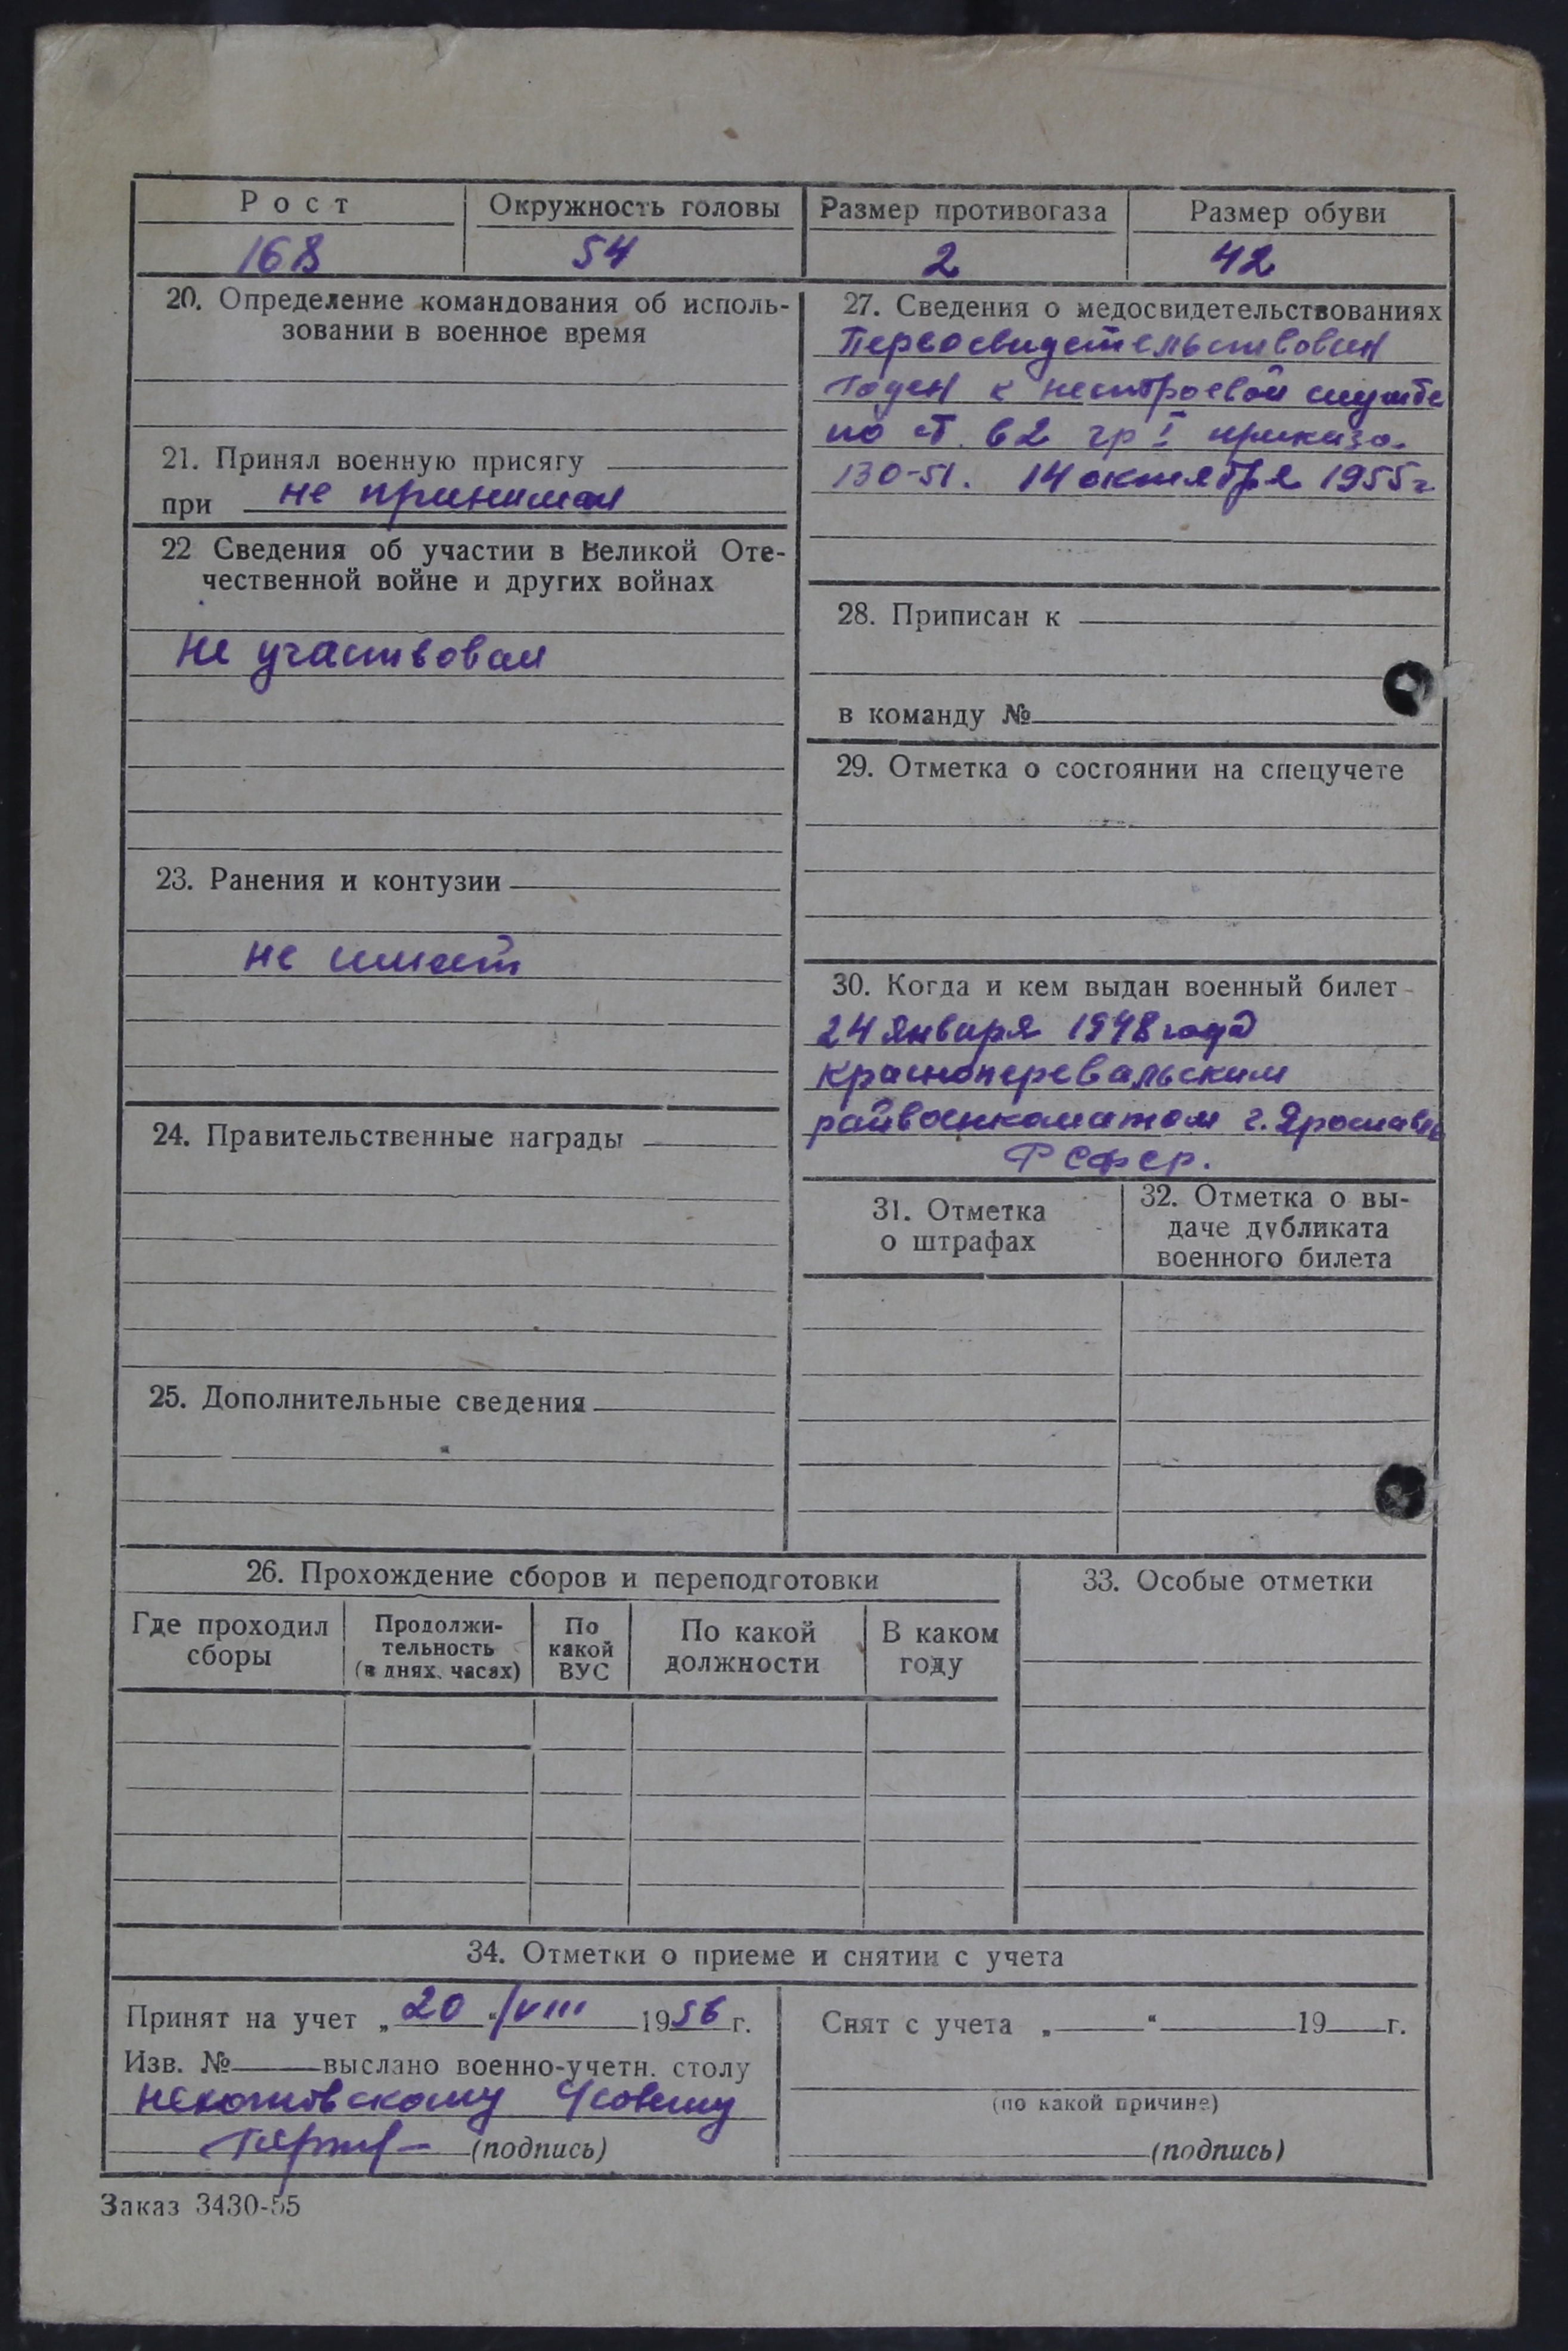 Рост
Окружность головы
Размер противогаза
Размер обуви
168
54
2
42
20. Определение командования об исполь-
зовании в военное время
21. Принял военную присягу
при не принимал
22 Сведения об участии в Великой Оте-
чественной войне и других войнах
Не участвовал
23. Ранения и контузии
не имеет
24. Правительственные награды
25. Дополнительные сведения
27. Сведения о медосвидетельствованиях
Годен к нестроевой службе
по ст. 62 гр I приказа
130-51. 14 октября 1955 г
28. Приписан к
в команду №
29. Отметка о состоянии на спецучете
30. Когда и кем выдан военный билет
24 января 1948 года
Красноперевальским
райвоенкоматом г. Ярославль
РСФСР.
31. Отметка
о штрафах
32. Отметка о вы-
даче дубликата
военного билета
26. Прохождение сборов и переподготовки
Где проходил
сборы
Продолжи-
тельность
(в днях, часах)
По
какой
ВУС
По какой
должности
В каком
году
33. Особые отметки
34. Отметки о приеме и снятии с учета
Принят на учет „20“/VIII 1956 г.
Изв. № выслано военно-учетн. столу
(подпись)
Снят с учета „ “ 19 г.
(по какой причине)
(подпись)
Заказ 3430-55